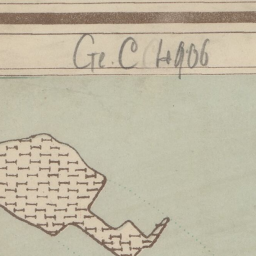 Ge. C 4906